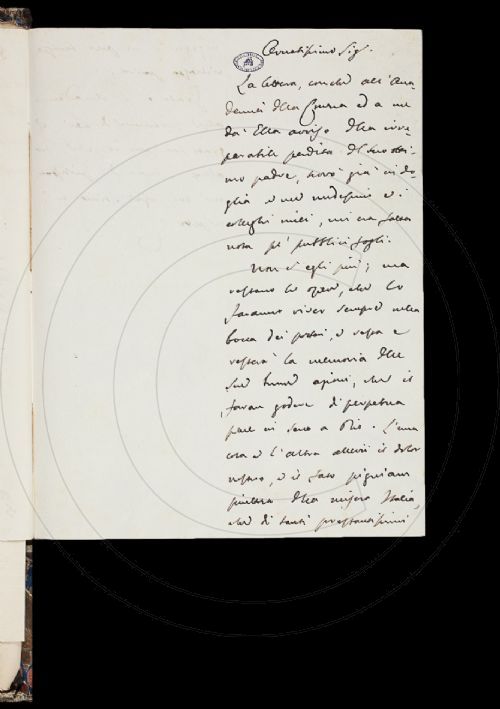 Ornatissimo Sig.
La lettera, con che all'Acca-
demia della Crusca ed a me
dà Ella avviso della irre-
parabile perdita del suo otti-
mo padre, trovò già in do-
glia e me medesimo e i
colleghi miei, cui era fatta
nota pe' pubblici fogli.
Non è egli più; ma
restano le opere, che lo
faranno viver sempre nella
bocca dei posteri, e resta e
resterà la memoria delle
sue buone azioni, che il
faran godere di perpetua
pace in seno a Dio. L'una
cosa e l'altra allevii il dolor
nostro, e il fato
della misera Italia,
che di tanti prestantissimi